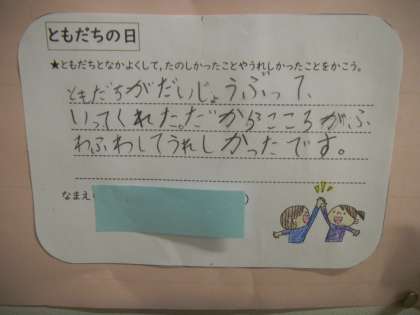 ともだちの日
★ともだちとなかよくして、たのしかったことやうれしかったことをかこう。
ともだちがだいじょうぶって、
いってくれた。だからこころがふ
わふわしてうれしかったです。
なまえ( )